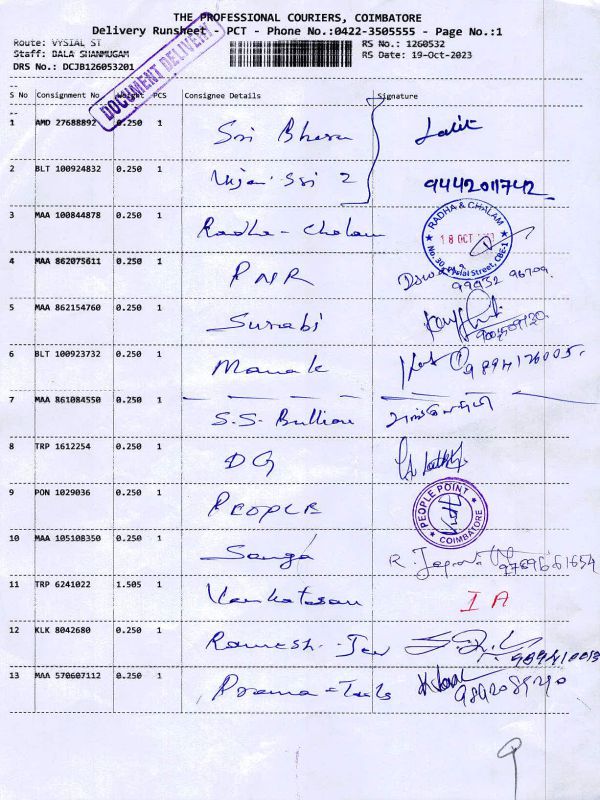 THE PROFESSIONAL COURIERS, COIMBATORE
Delivery Runsheet - PCT - Phone No.:0422-3505555 - Page No.:1
Route: VYSIAL ST RS No.: 1260532
Staff: BALA SHANMUGAM RS Date: 19-Oct-2023
DRS No.: DCJB126053201
DOCUMENT DELIVERY
S No Consignment No Weight PCS Consignee Details Signature
1 AMD 27688892 0.250 1 Sri Lalit
2 BLT 100924832 0.250 1 Vijai Sri 2 9442011742
3 MAA 100844878 0.250 1 Radha - Chalam RADHA & CHALAM 18 OCT No. 30, Vysial Street, CBE-1
4 MAA 862075611 0.250 1 PNR 99952 96709
5 MAA 862154760 0.250 1 Surabi
6 BLT 100923732 0.250 1 Manak 9894126005.
7 MAA 861084550 0.250 1 S.S. Bullion
8 TRP 1612254 0.250 1 DG
9 PON 1029036 0.250 1 PEOPLE PEOPLE POINT COIMBATORE
10 MAA 105108350 0.250 1 Sanga R.
11 TRP 6241022 1.505 1 Venkatesan IA
12 KLK 8042680 0.250 1 Ramesh - Jew
13 MAA 570607112 0.250 1 Prema - Tools
9